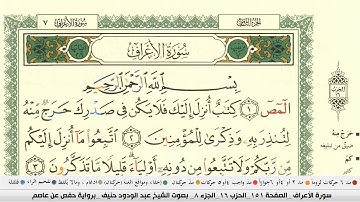 سورة الأعراف ٧
الجزء الثامن
سُورَةُ الأَعْرَافِ
بِسْمِ اللَّهِ الرَّحْمَٰنِ الرَّحِيمِ
الٓمٓصٓ ١ كِتَٰبٌ أُنزِلَ إِلَيْكَ فَلَا يَكُن فِى صَدْرِكَ حَرَجٌ مِّنْهُ
لِتُنذِرَ بِهِۦ وَذِكْرَىٰ لِلْمُؤْمِنِينَ ٢ ٱتَّبِعُوا۟ مَآ أُنزِلَ إِلَيْكُم
مِّن رَّبِّكُمْ وَلَا تَتَّبِعُوا۟ مِن دُونِهِۦٓ أَوْلِيَآءَ قَلِيلًا مَّا تَذَكَّرُونَ ٣
حرج منه
سورة الأعراف، الصفحة ١٥١، الحزب ١٦، الجزء ٨، بصوت الشيخ عبد الودود حنيف، برواية حفص عن عاصم